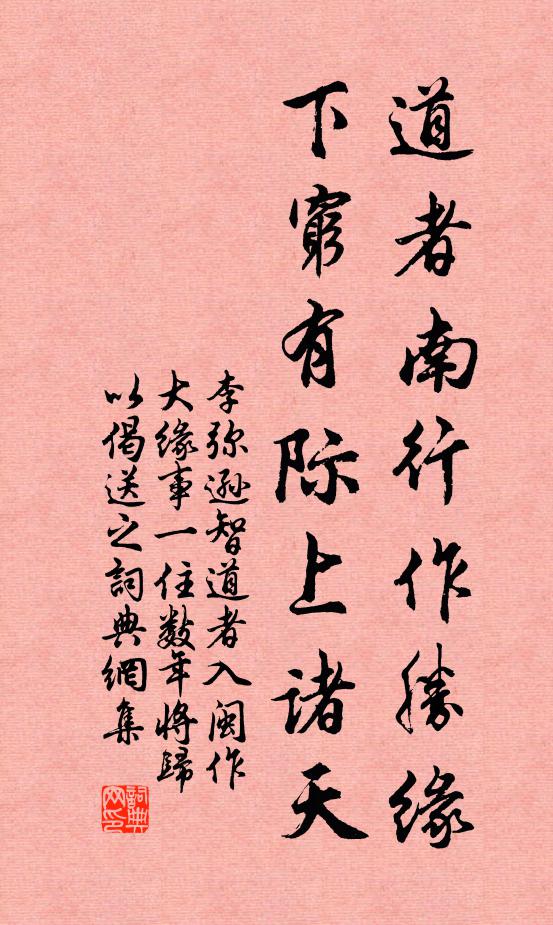 道者南行作勝緣
下窮有际上諸天
李弥遜智道者入闽作
大缘事一住数年将歸
以偈送之詞典網集
詞典网印